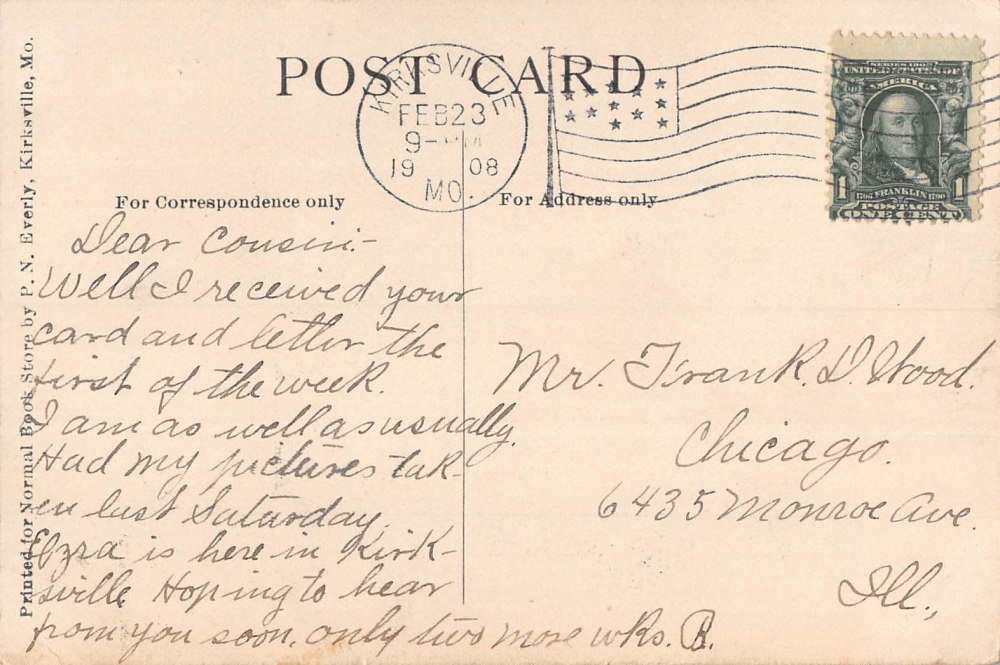 POST CARD
KIRKSVILLE
FEB 23
9-PM
1908
MO.
SERIES 1902
UNITED STATES OF
AMERICA
1 FRANKLIN 1
POSTAGE
ONE CENT
For Correspondence only
For Address only
Printed for Normal Book Store by P. N. Everly, Kirksville, Mo.
Dear Cousin:-
Well I received your
card and letter the
first of the week.
I am as well as usually.
Had my pictures tak-
en last Saturday.
Ezra is here in Kirk-
sville Hoping to hear
from you soon. only two more wks. R.
Mr. Frank. D. Wood.
Chicago.
6435 Monroe Ave.
Ill.,